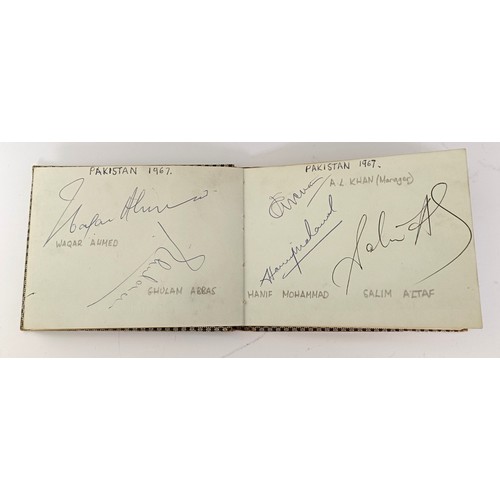 PAKISTAN 1967.
Waqar Ahmed
WAQAR AHMED
GHULAM ABBAS
PAKISTAN 1967.
A L KHAN (Manager)
Hanif Mohammad
HANIF MOHAMMAD
Salim Al
SALIM ALTAF